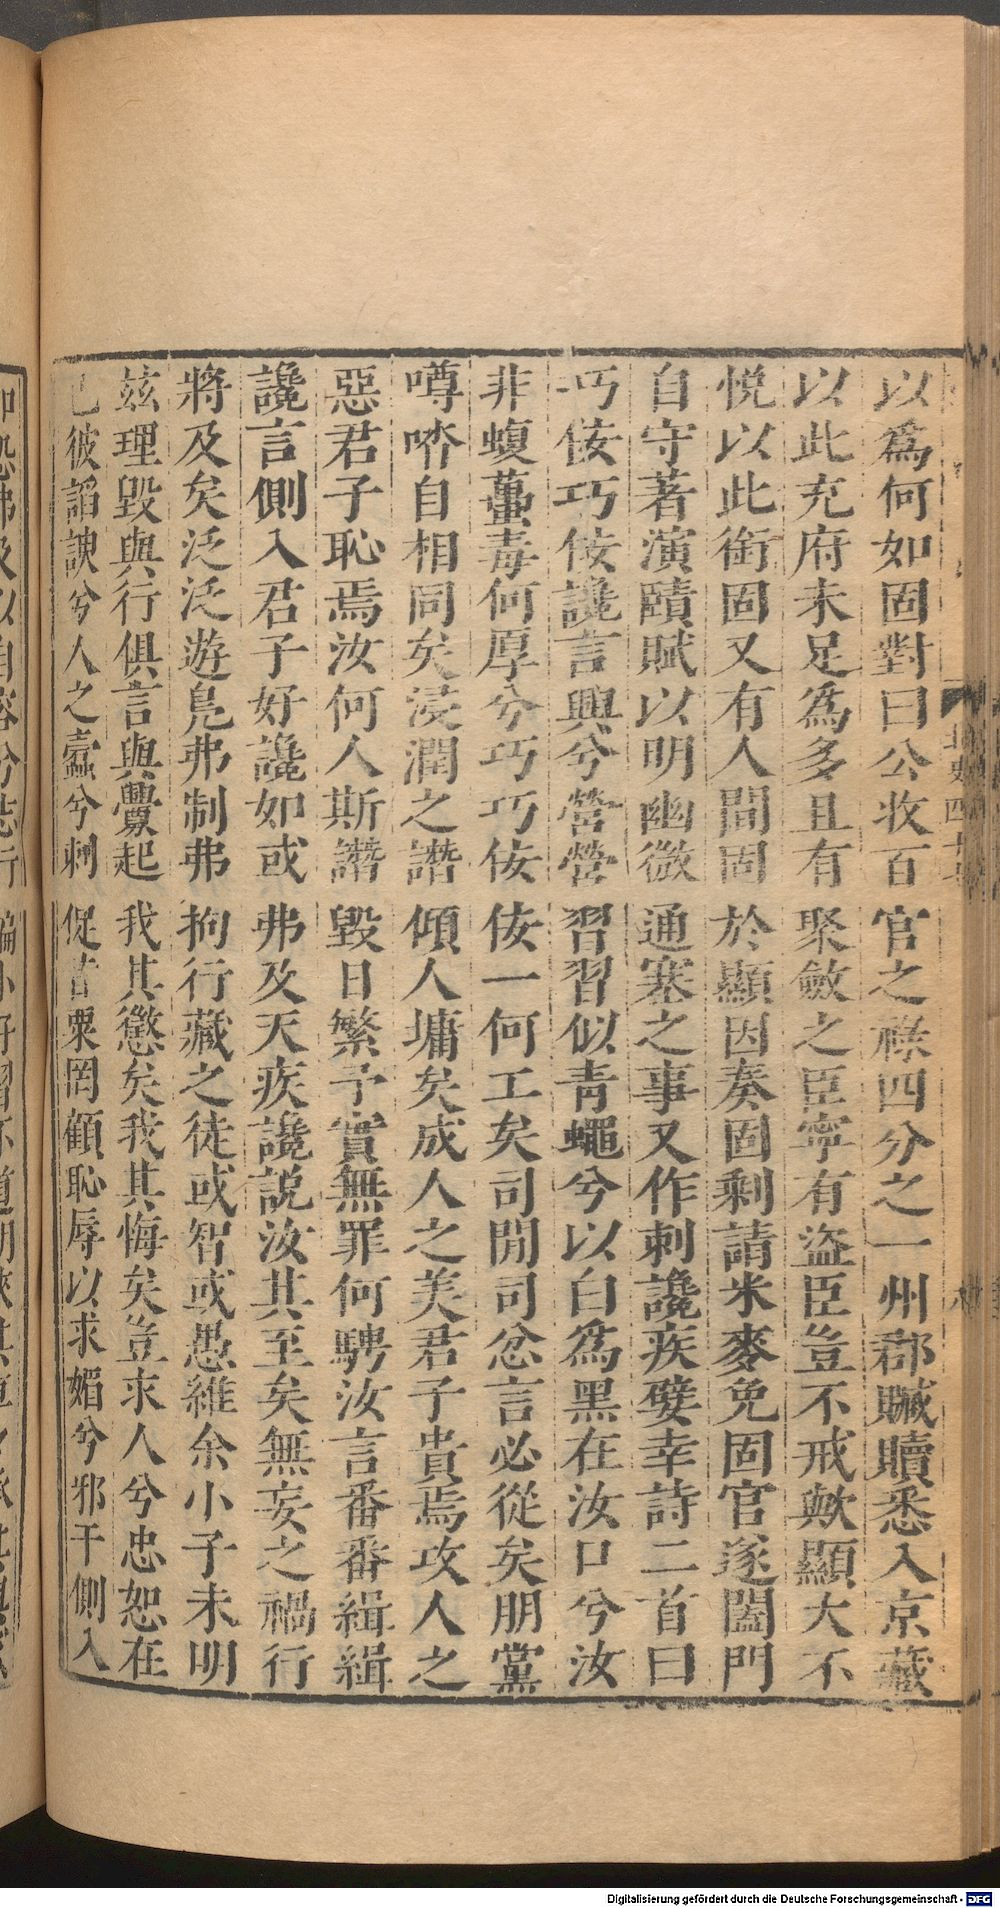 以爲何如固對曰公收百官之祿四分之一州郡贓贖悉入京藏
以此充府未足爲多且有聚斂之臣寧有盜臣豈不戒歟顯大不
悅以此銜固又有人間固於顯因奏固剩請米麥免固官遂闔門
自守著演賾賦以明幽微通塞之事又作刺讒疾嬖幸詩二首曰
巧佞巧佞讒言興兮營營習習似青蠅兮以白爲黑在汝口兮汝
非蝮蠆毒何厚兮巧巧佞佞一何工矣司閒司忿言必從矣朋黨
噂喒自相同矣浸潤之譖傾人墉矣成人之美君子貴焉攻人之
惡君子恥焉汝何人斯譖毀日繁予實無罪何騁汝言番番緝緝
讒言側入君子好讒如或弗及天疾讒說汝其至矣無妄之禍行
將及矣泛泛遊鳧弗制弗拘行藏之徒或智或愚維余小子未明
茲理毀與行俱言與釁起我其懲矣我其悔矣豈求人兮忠恕在
已彼諂諛兮人之蠹兮刺促昔粟罔顧恥辱以求媚兮邪干側入
Digitalisierung gefördert durch die Deutsche Forschungsgemeinschaft - DFG